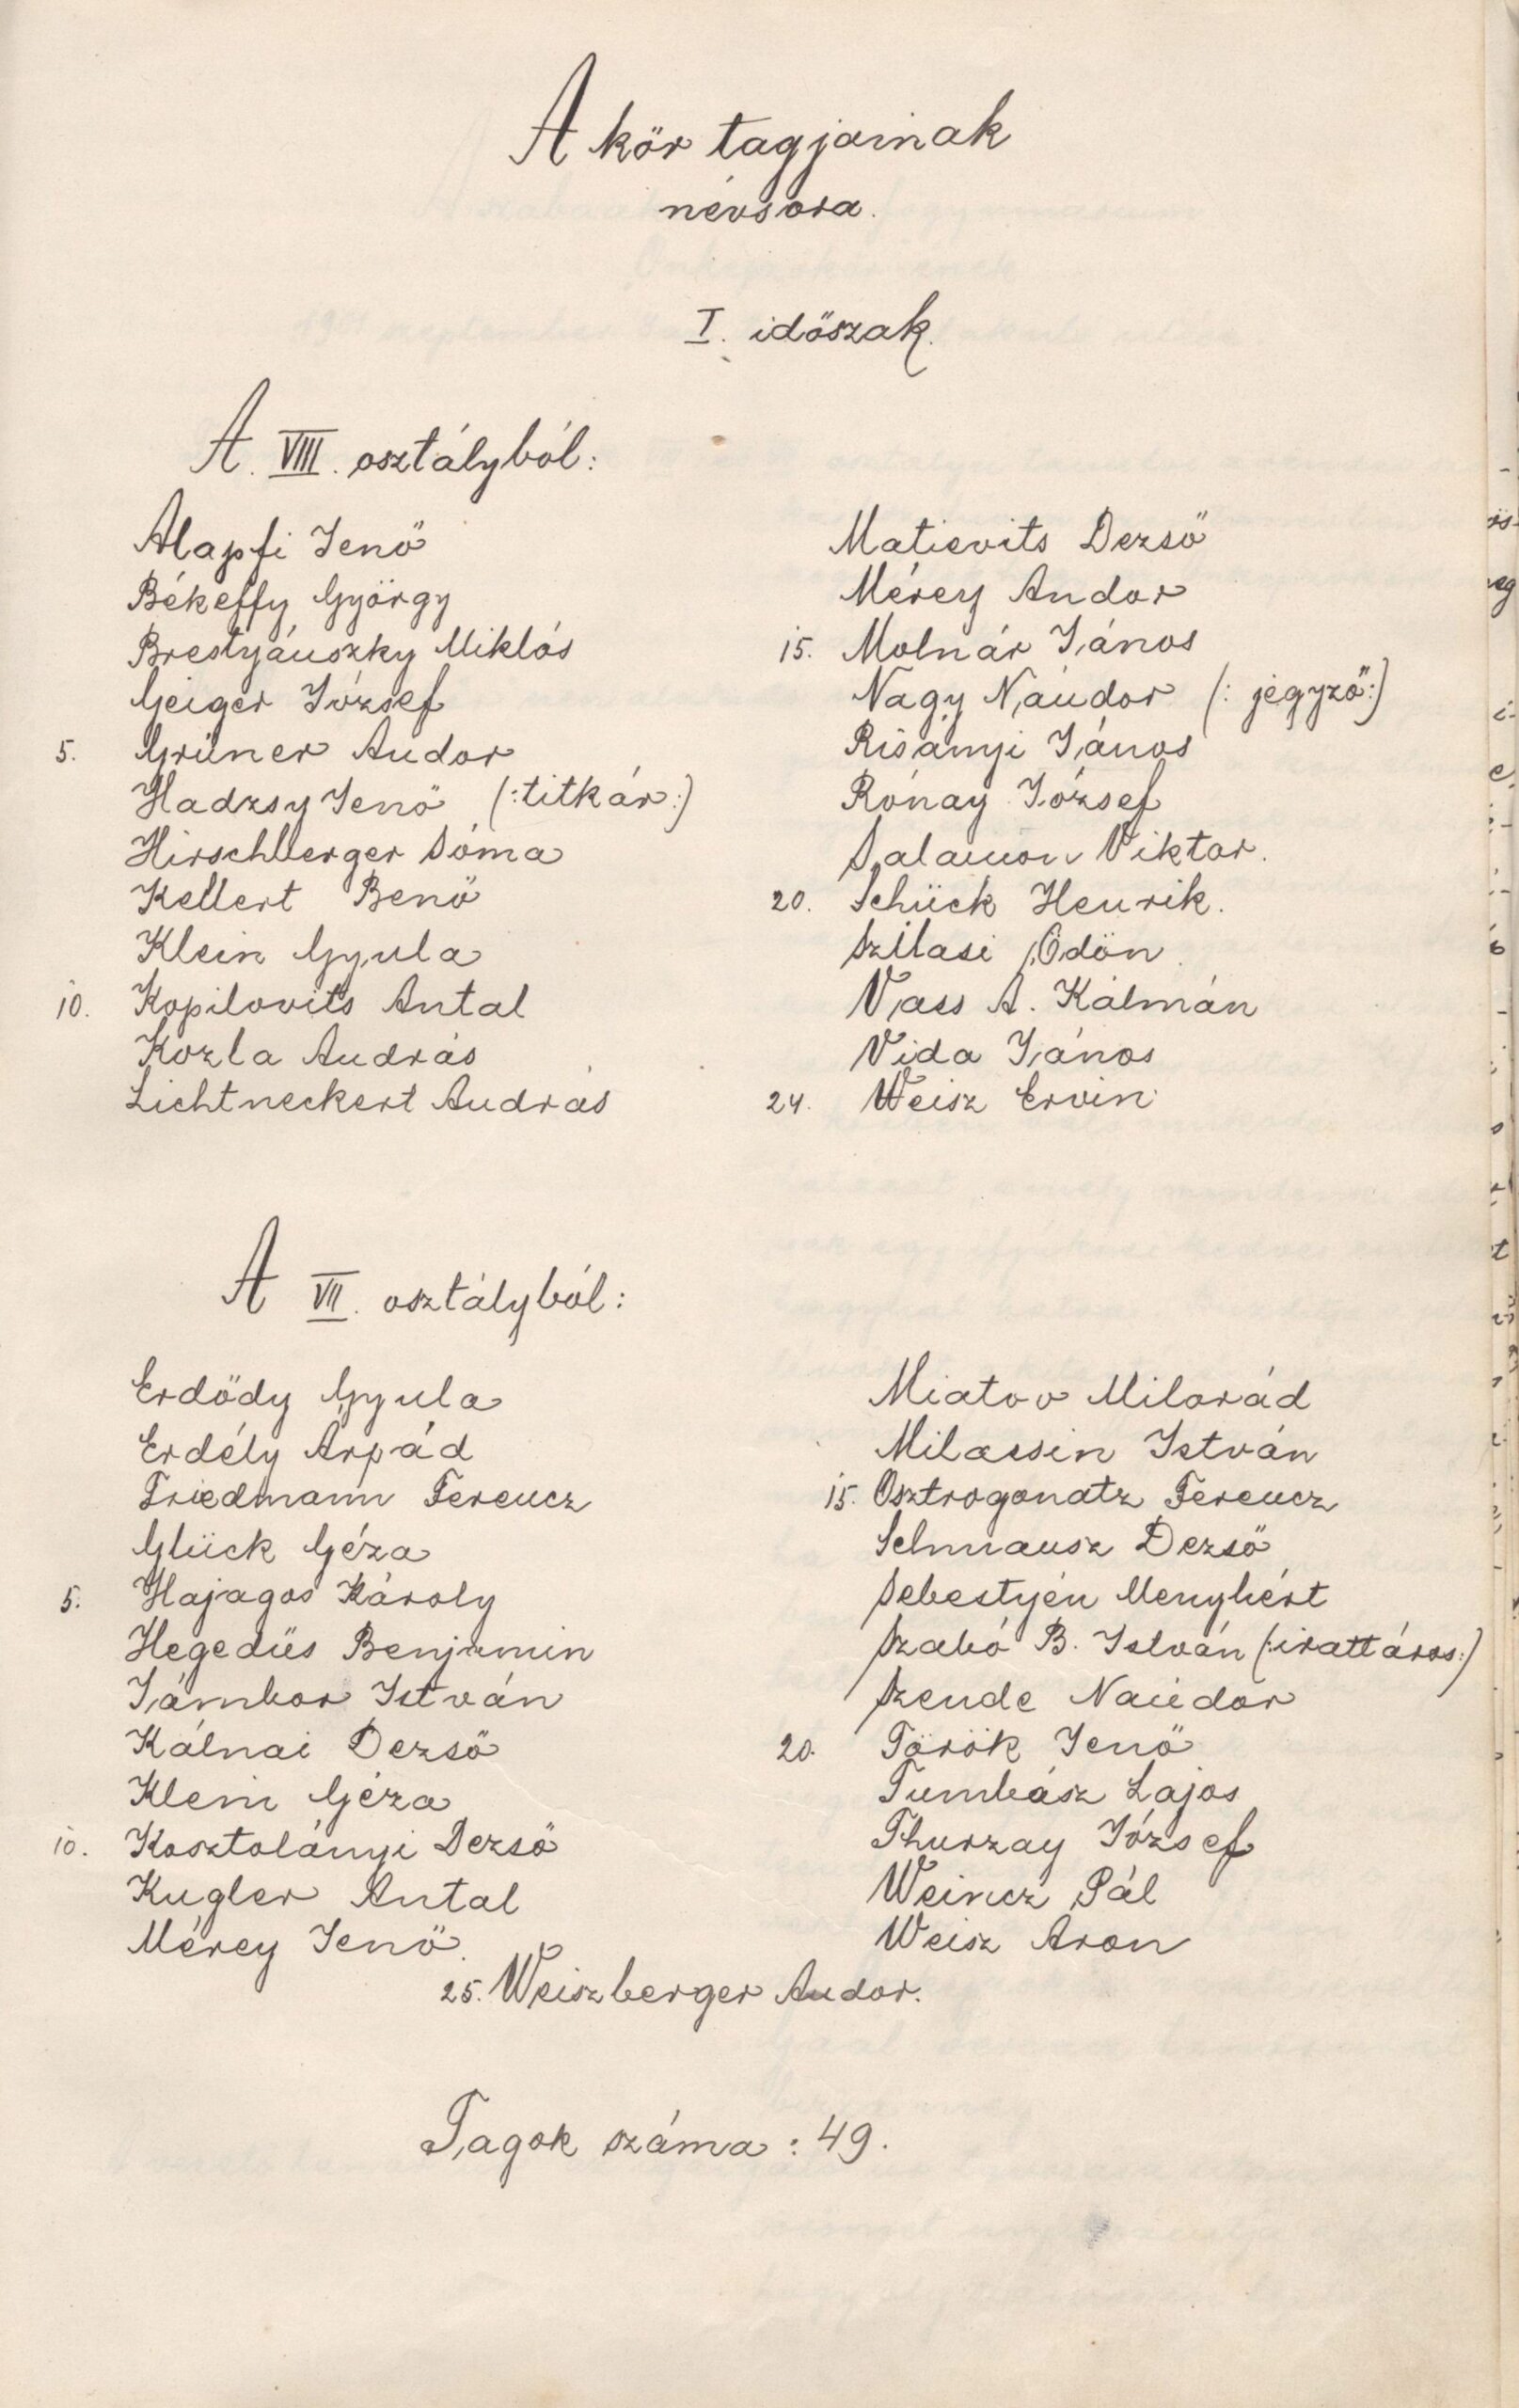 A kör tagjainak
névsora.
I. időszak.
A. VIII. osztályból:
Alapfi Jenő
Békeffy György
Brestyánszky Miklós
Geiger József
5. Grüner Andor
Hadzsy Jenő (:titkár:)
Hirschberger Soma
Kellert Benő
Klein Gyula
10. Kopilovits Antal
Kozla András
Lichtneckert András
Matievits Dezső
Mérey Andor
15. Molnár János
Nagy Nándor (: jegyző:)
Risányi János
Rónay József
Salamon Viktor.
20. Schück Henrik.
Szilasi Ödön.
Vass A. Kálmán
Vida János
24. Weisz Ervin
A VII. osztályból:
Erdődy Gyula
Erdély Árpád
Friedmann Ferencz
Glück Géza
5. Hajagos Károly
Hegedüs Benjamin
Jámbor István
Kálnai Dezső
Klein Géza
10. Kosztolányi Dezső
Kugler Antal
Mérey Jenő.
Miatov Milorád
Milassin István
15. Osztrogonatz Ferencz
Schmausz Dezső
Sebestyén Menyhért
Szabó B. István (:irattáros:)
Szende Nándor
20. Török Jenő
Tumbász Lajos
Thurzay József
Weincz Pál
Weisz Áron
25. Weiszberger Andor.
Tagok száma: 49.